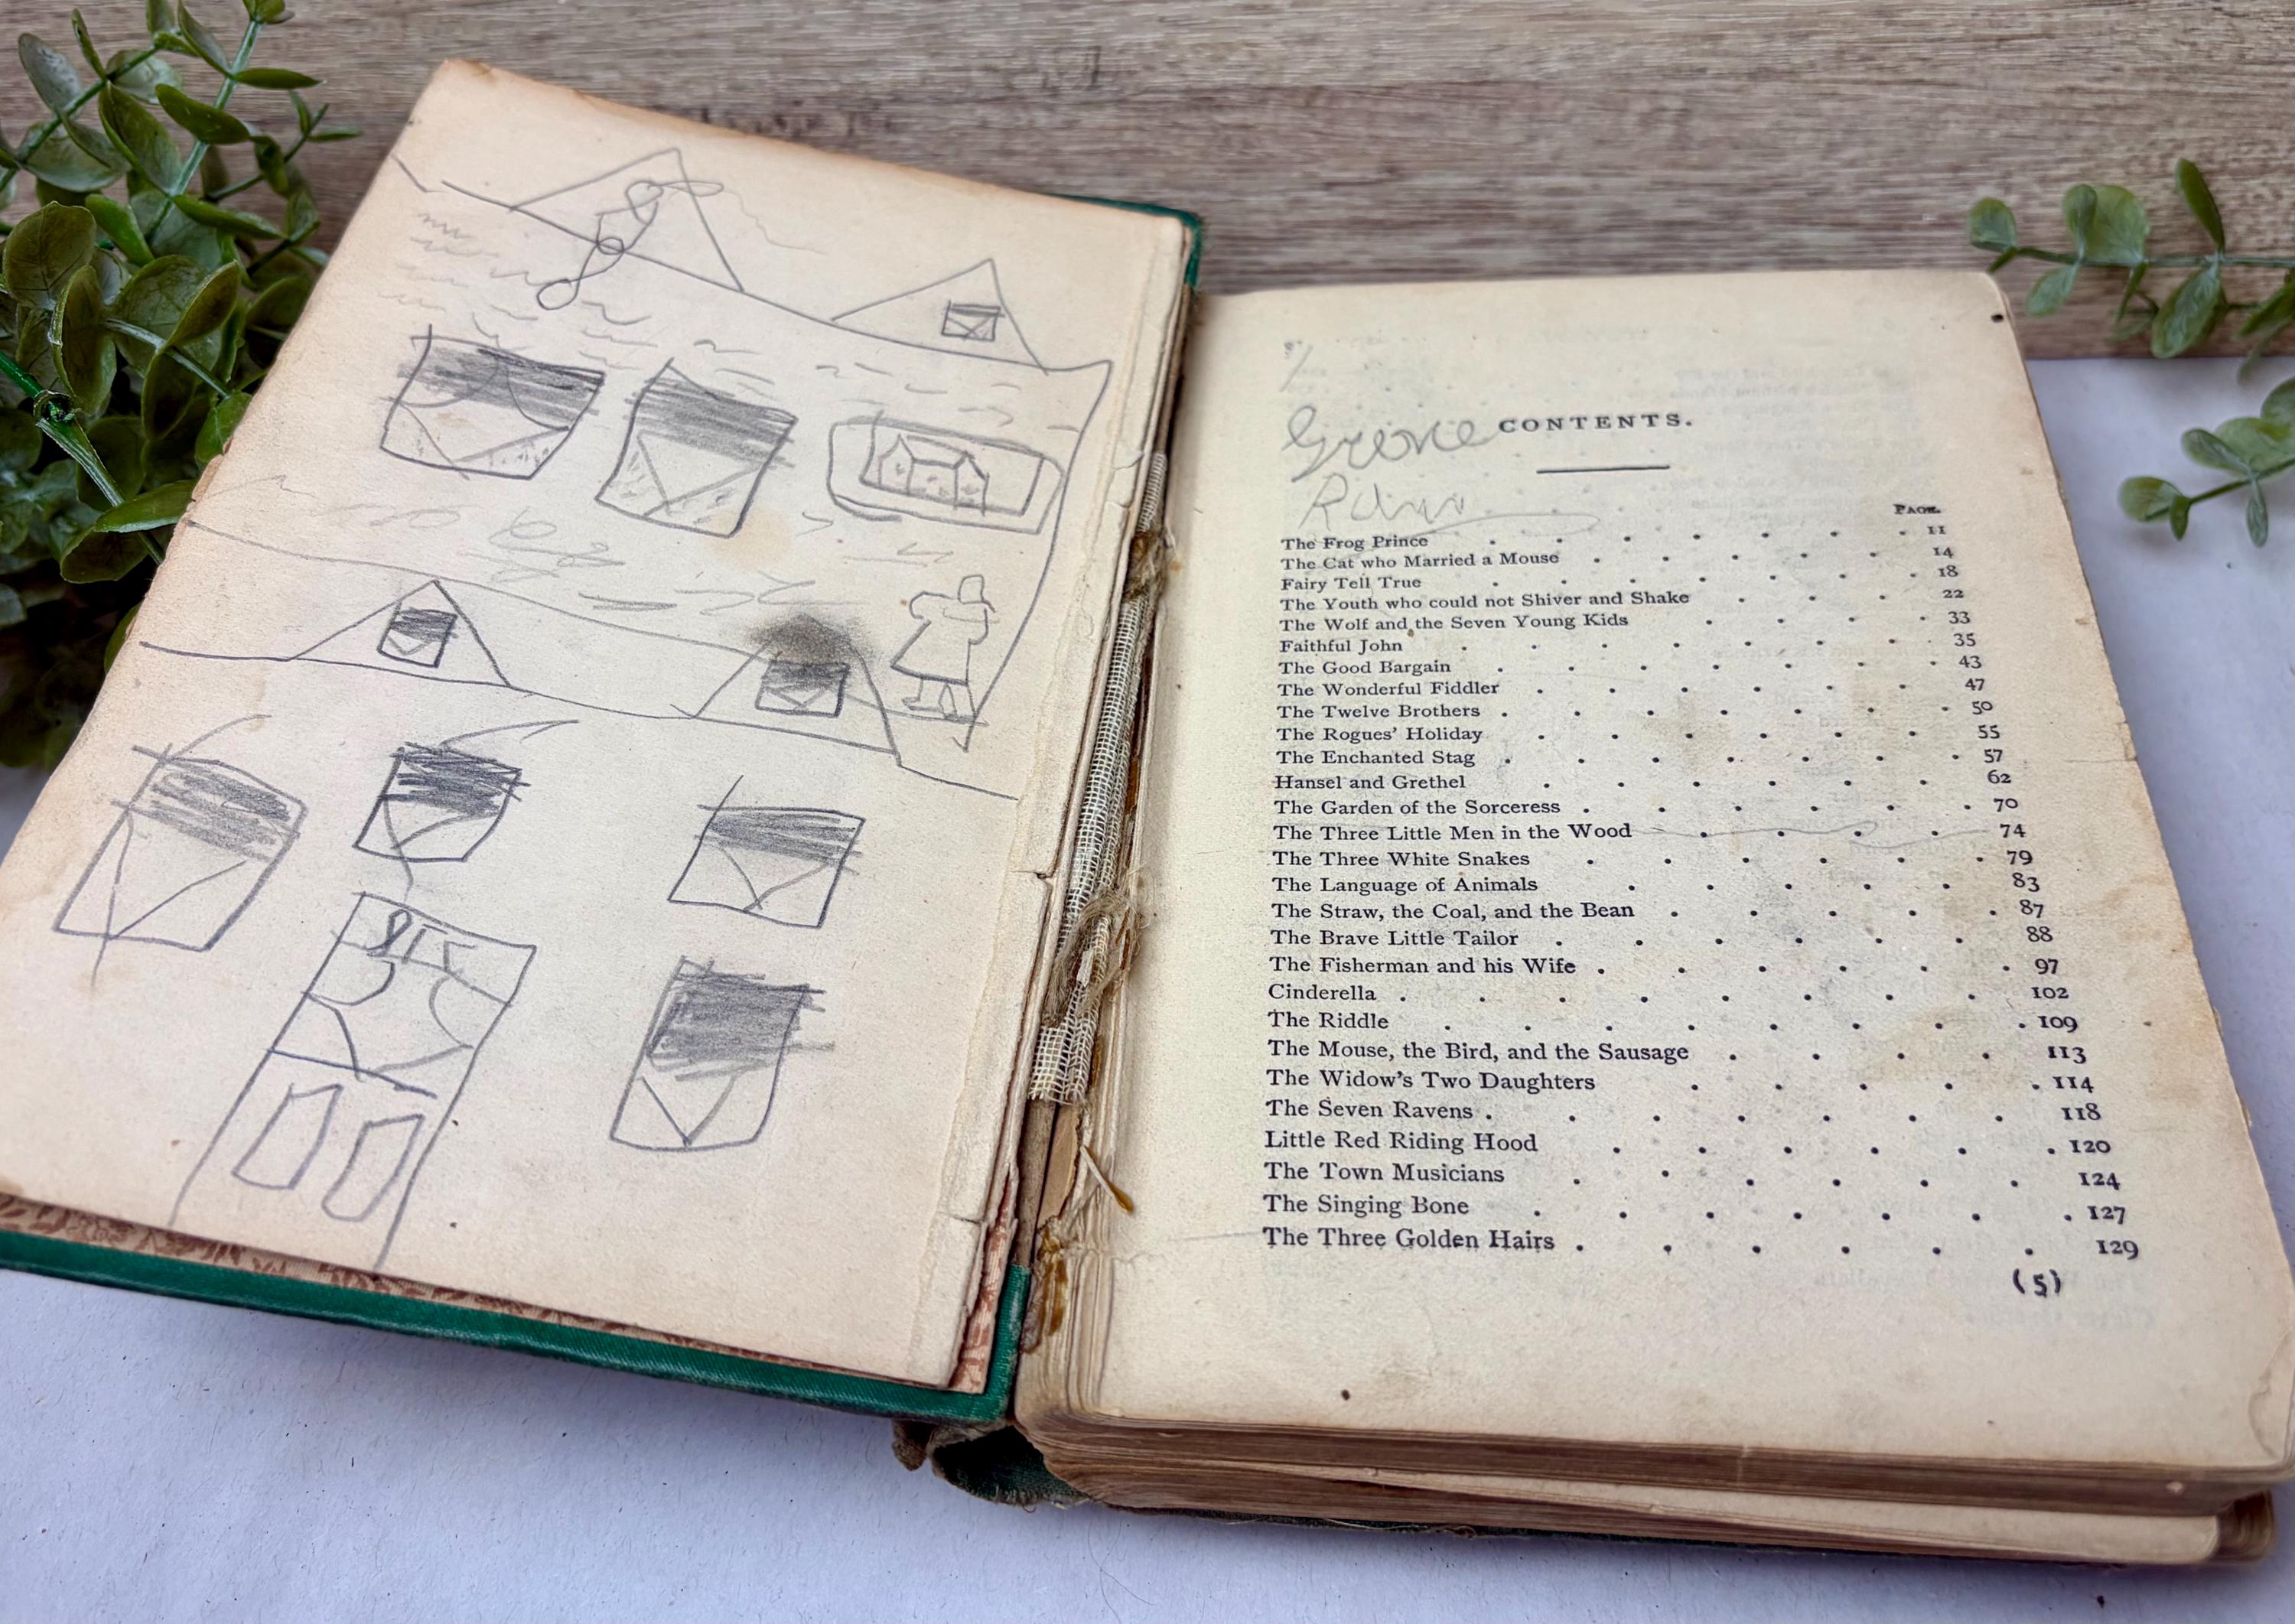 CONTENTS.
PAGE.
The Frog Prince . . . . . . . 11
The Cat who Married a Mouse . . . . . 14
Fairy Tell True . . . . . . . 18
The Youth who could not Shiver and Shake . . . 22
The Wolf and the Seven Young Kids . . . . 33
Faithful John . . . . . . . 35
The Good Bargain . . . . . . . 43
The Wonderful Fiddler . . . . . . 47
The Twelve Brothers . . . . . . . 50
The Rogues' Holiday . . . . . . 55
The Enchanted Stag . . . . . . . 57
Hansel and Grethel . . . . . . 62
The Garden of the Sorceress . . . . . . 70
The Three Little Men in the Wood . . . . 74
The Three White Snakes . . . . . . 79
The Language of Animals . . . . . 83
The Straw, the Coal, and the Bean . . . . . 87
The Brave Little Tailor . . . . . . 88
The Fisherman and his Wife . . . . . . 97
Cinderella . . . . . . . . 102
The Riddle . . . . . . . . 109
The Mouse, the Bird, and the Sausage . . . . 113
The Widow's Two Daughters . . . . . 114
The Seven Ravens . . . . . . . 118
Little Red Riding Hood . . . . . . 120
The Town Musicians . . . . . . 124
The Singing Bone . . . . . . . 127
The Three Golden Hairs . . . . . . 129
(5)